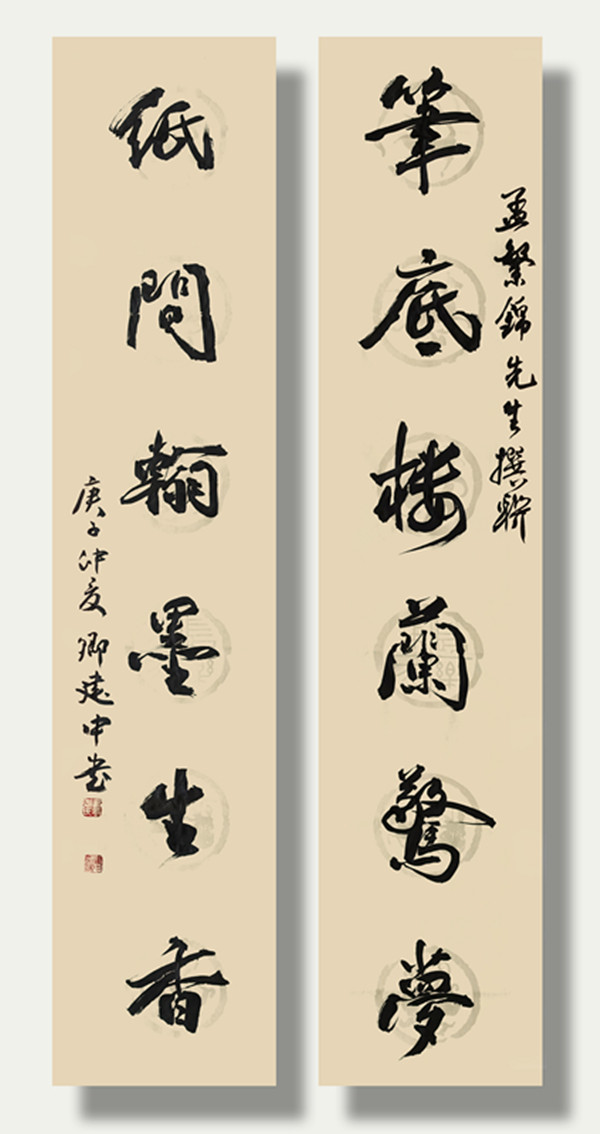 孟繁錦先生撰联
筆底楼蘭驚夢
紙間翰墨生香
庚子仲夏 卿建中书